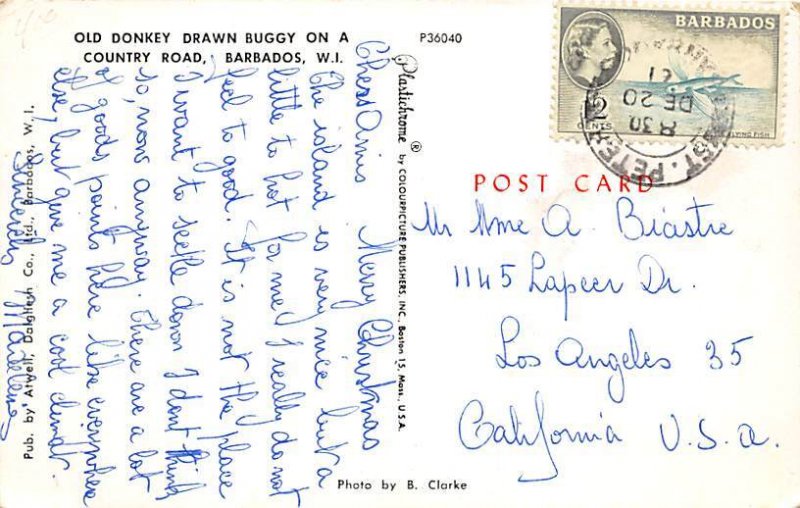 OLD DONKEY DRAWN BUGGY ON A
COUNTRY ROAD, BARBADOS, W.I.
P36040
Chers Amis Merry Christmas
The island is very nice but a
little to hot for me I really do not
feel to good. It is not the place
I want to settle down I dont think
so, now anyway. There are a lot
of goods points here like everywhere
else, but give me a cool climat.
Sincerely
Pub. by Atwell, Dalgliesh Co., Ltd., Barbados, W. I.
Plastichrome ® by COLOURPICTURE PUBLISHERS, INC., Boston 15, Mass., U.S.A.
Photo by B. Clarke
BARBADOS
2
CENTS
FLYING FISH
ST. PETER
8 30
DE 20
POST CARD
Mr Mme A. Biastre
1145 Lapeer Dr.
Los Angeles 35
California U.S.A.